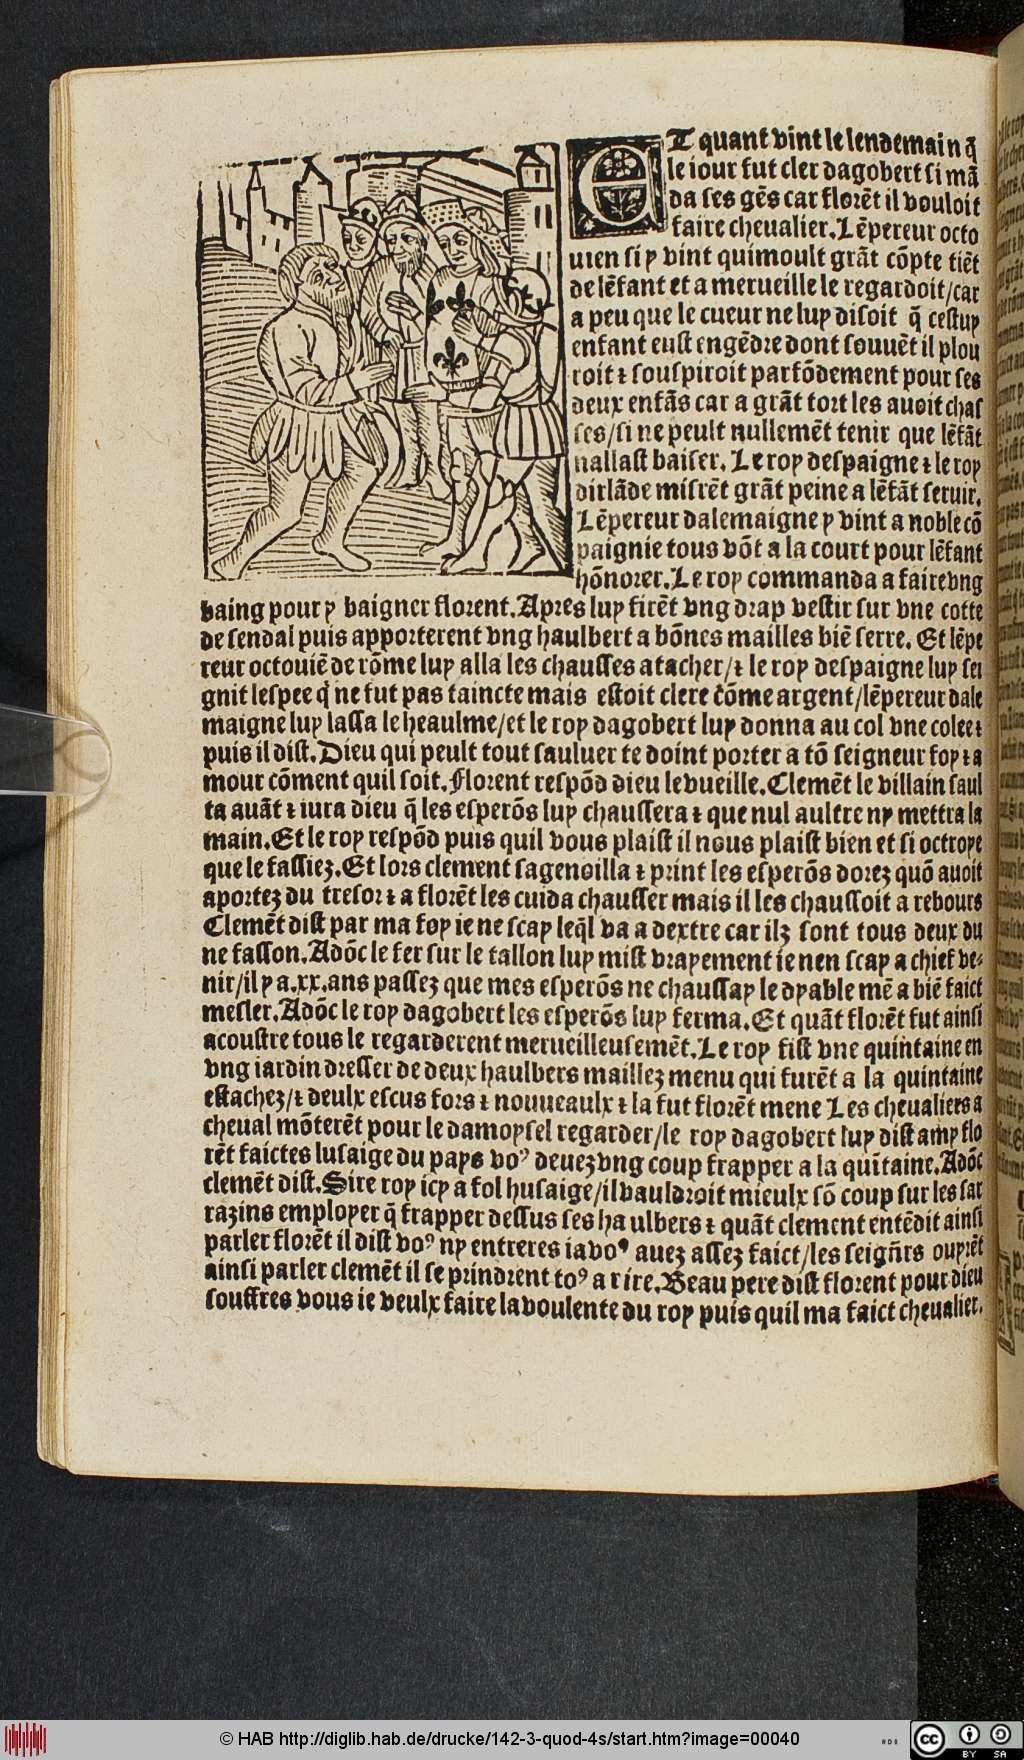 ET quant vint le lendemain q̃
le iour fut cler dagobert si mã
da ses gẽs car florẽt il vouloit
faire chevalier. Lẽpereur octo
uien si y vint qui moult grãt cõpte tiẽt
de lẽfant et a merueille le regardoit/car
a peu que le cueur ne luy disoit q̃ cestuy
enfant eust engẽdre dont souuẽt il plou
roit ⁊ souspiroit parfõdement pour ses
deux enfãs car a grãt tort les auoit chas
ses/si ne peult nullemẽt tenir que lẽfãt
nallast baiser. Le roy despaigne ⁊ le roy
dirlãde misrẽt grãt peine a lẽfãt seruir.
Lẽpereur dalemaigne y vint a noble cõ
paignie tous võt a la court pour lẽfant
hõnorer. Le roy commanda a faire vng
baing pour y baigner florent. Apres luy firẽt vng drap vestir sur vne cotte
de sendal puis apporterent vng haulbert a bõnes mailles biẽ serre. Et lẽpe
reur octouiẽ de rõme luy alla les chausses atacher/⁊ le roy despaigne luy sei
gnit lespee q̃ ne fut pas taincte mais estoit clere cõme argent/lẽpereur dale
maigne luy lassa le heaulme/et le roy dagobert luy donna au col vne colee ⁊
puis il dist. Dieu qui peult tout sauluer te doint porter a tõ seigneur foy ⁊ a
mour cõment quil soit. Florent respõd dieu le vueille. Clemẽt le villain saul
ta auãt ⁊ iura dieu q̃ les esperõs luy chaussera ⁊ que nul aultre ny mettra la
main. Et le roy respõd puis quil vous plaist il nous plaist bien et si octroye
que le fassiez. Et lors clement sagenoilla ⁊ print les esperõs dorez quõ auoit
aportez du tresor ⁊ a florẽt les cuida chausser mais il les chaussoit a rebours
Clemẽt dist par ma foy ie ne scay leq̃l va a dextre car ilz sont tous deux du
ne fasson. Adõc le fer sur le tallon luy mist vrayement ie nen scay a chief ve⸗
nir/il y a.xx.ans passez que mes esperõs ne chaussay le dyable mẽ a biẽ faict
mesler. Adõc le roy dagobert les esperõs luy ferma. Et quãt florẽt fut ainsi
acoustre tous le regarderent merueilleusemẽt. Le roy fist vne quintaine en
vng iardin dresser de deux haulbers maillez menu qui furẽt a la quintaine
estachez/⁊ deulx escus fors ⁊ nouueaulx ⁊ la fut florẽt mene Les chevaliers a
cheual mõterẽt pour le damoysel regarder/le roy dagobert luy dist amy flo
rẽt faictes lusaige du pays voꝰ deuez vng coup frapper a la quĩtaine. Adõc
clemẽt dist. Sire roy icy a fol husaige/il vauldroit mieulx sõ coup sur les sar
razins employer q̃ frapper dessus ses haulbers ⁊ quãt clement entẽdit ainsi
parler florẽt il dist voꝰ ny entreres ia voꝰ auez assez faict/les seigñrs ouyrẽt
ainsi parler clemẽt il se prindrent toꝰ a rire. Beau pere dist florent pour dieu
souffres vous ie veulx faire la voulente du roy puis quil ma faict chevalier.
© HAB http://diglib.hab.de/drucke/142-3-quod-4s/start.htm?image=00040
cc BY SA